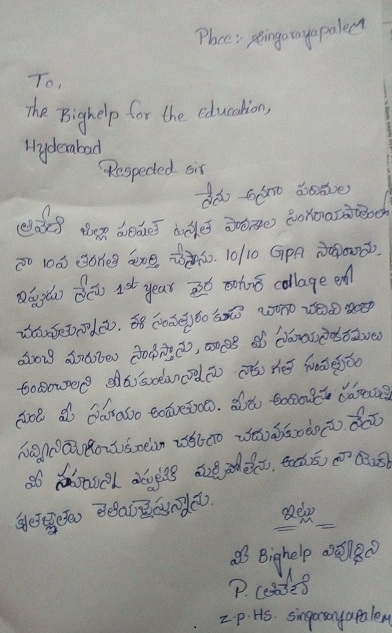 Place:- Singarayapalem
To,
The Bighelp for the Education,
Hyderabad
Respected sir
నేను అనగా పరిమల
త్రివేణి జిల్లా పరిషత్ ఉన్నత పాఠశాల సింగరాయపాలెంలో
నా 10వ తరగతి పూర్తి చేసాను. 10/10 GPA సాధించాను.
ఇప్పుడు నేను 1st year వైర collage లో
చదువుతున్నాను. ఈ సంవత్సరం కూడా బాగా చదివి ఇంకా
మంచి మార్కులు సాధిస్తాను, దానికి మీ సహాయసహకారములు
అందించాలని కోరుకుంటూన్నాను. నాకు గత సంవత్సరం
నుండి మీ సహాయం అందుతుంది. మీరు అందించిన సహాయాన్ని
సద్వినియోగించుకుంటూ చక్కగా చదువుకుంటాను. నేను
మీ సహాయాన్ని ఎప్పటికి మర్చిపోలేను. అందుకు నా యొక్క
కృతజ్ఞతలు తెలియచేస్తున్నాను.
ఇట్లు
మీ Bighelp విద్యార్థిని
P. త్రివేణి
Z.P.HS. Singarayapalem